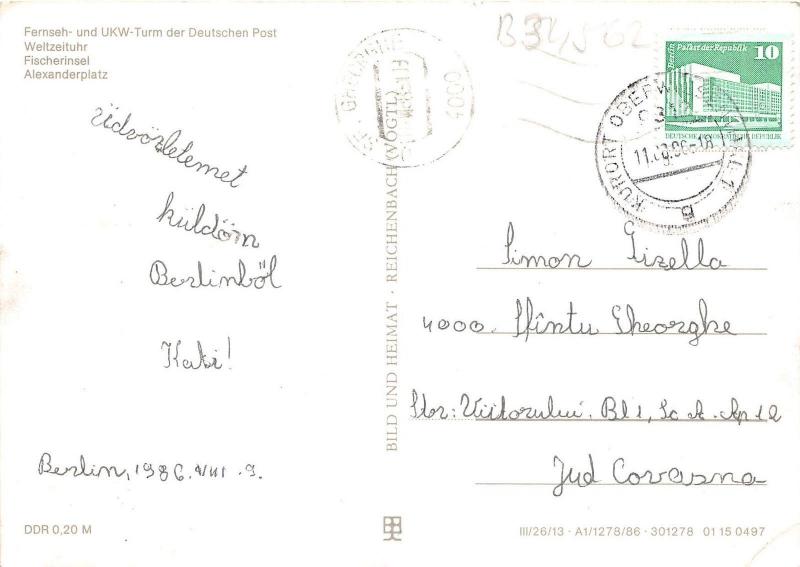 Fernseh- und UKW-Turm der Deutschen Post
Weltzeituhr
Fischerinsel
Alexanderplatz
Üdvözletemet
küldöm
Berlinböl
Kati!
Berlin, 1986. VIII. 9.
DDR 0,20 M
BILD UND HEIMAT · REICHENBACH (VOGTL)
4000
B34,562
Berlin Palast der Republik
10
DEUTSCHE DEMOKRATISCHE REPUBLIK
KURORT OBERWIESENTHAL 1
-18
B
Simon Gizella
4000. Sfîntu Gheorghe
Str: Viitorului. Bl 1, Sc A. Ap 12
Jud Covasna
III/26/13 · A1/1278/86 · 301278 01 15 0497